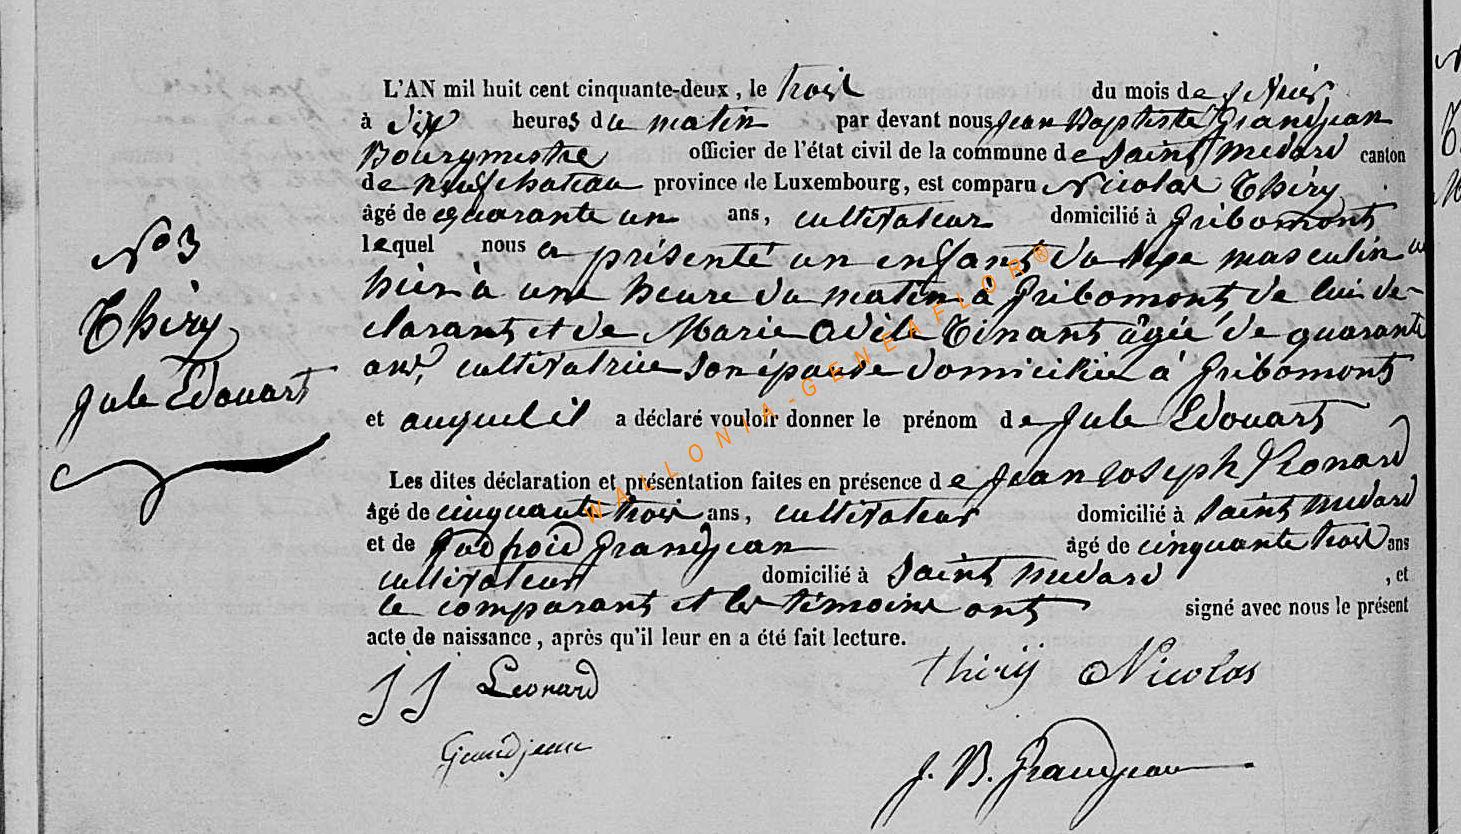 L'AN mil huit cent cinquante-deux, le trois du mois de
à dix heures du matin par devant nous Jean Baptiste Grandjean
Bourgmestre officier de l'état civil de la commune de Saint Medard canton
de neufchateau province de Luxembourg, est comparu Nicolas Thiry
âgé de quarante un ans, cultivateur domicilié à Gribomont
lequel nous a présenté un enfant du sexe masculin né
hier à une heure du matin à Gribomont, de lui de-
clarant et de Marie Adèle Tinant âgée de quarante
ans, cultivatrice son épouse domiciliée à Gribomont
et auquel il a déclaré vouloir donner le prénom de Jule Edouart
Les dites déclaration et présentation faites en présence de Jean Joseph Léonard
âgé de cinquante trois ans, cultivateur domicilié à Saint Medard
et de Grandjean âgé de cinquante trois ans
cultivateur domicilié à Saint Medard, et
le comparant et les témoins ont signé avec nous le présent
acte de naissance, après qu'il leur en a été fait lecture.
No 3
Thiry
Jule Edouart
J J Leonard
Thiry Nicolas
Grandjean
J. B. Grandjean
WALLONIA-GENEAFLOR®